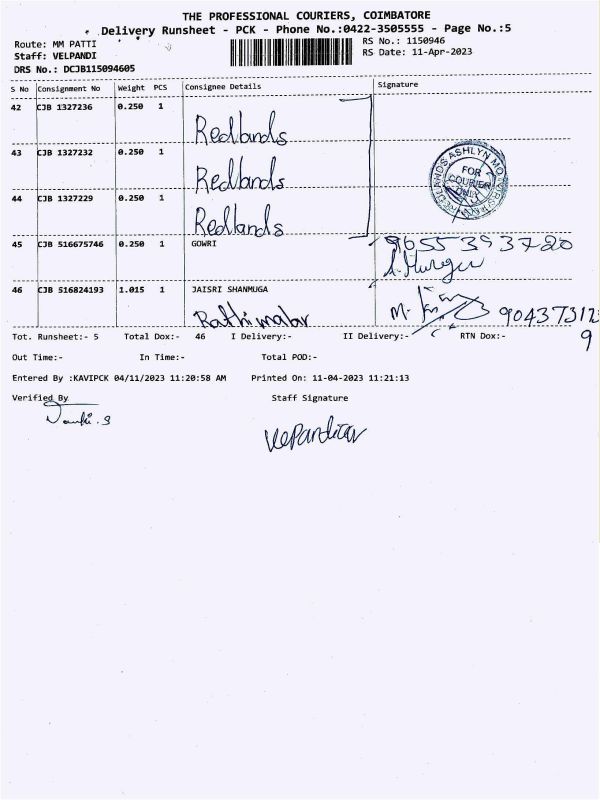 THE PROFESSIONAL COURIERS, COIMBATORE
Delivery Runsheet - PCK - Phone No.:0422-3505555 - Page No.:5
Route: MM PATTI
RS No.: 1150946
Staff: VELPANDI
RS Date: 11-Apr-2023
DRS No.: DCJB115094605
S No Consignment No Weight PCS Consignee Details Signature
42 CJB 1327236 0.250 1
Redlands
43 CJB 1327232 0.250 1
Redlands
44 CJB 1327229 0.250 1
Redlands
REDLANDS ASHLYN
FOR
COURIER
ONLY
45 CJB 516675746 0.250 1 GOWRI
9655393720
46 CJB 516824193 1.015 1 JAISRI SHANMUGA
Rathimalar
904373112
9
Tot. Runsheet:- 5 Total Dox:- 46 I Delivery:- II Delivery:- RTN Dox:-
Out Time:- In Time:- Total POD:-
Entered By :KAVIPCK 04/11/2023 11:20:58 AM Printed On: 11-04-2023 11:21:13
Verified By Staff Signature